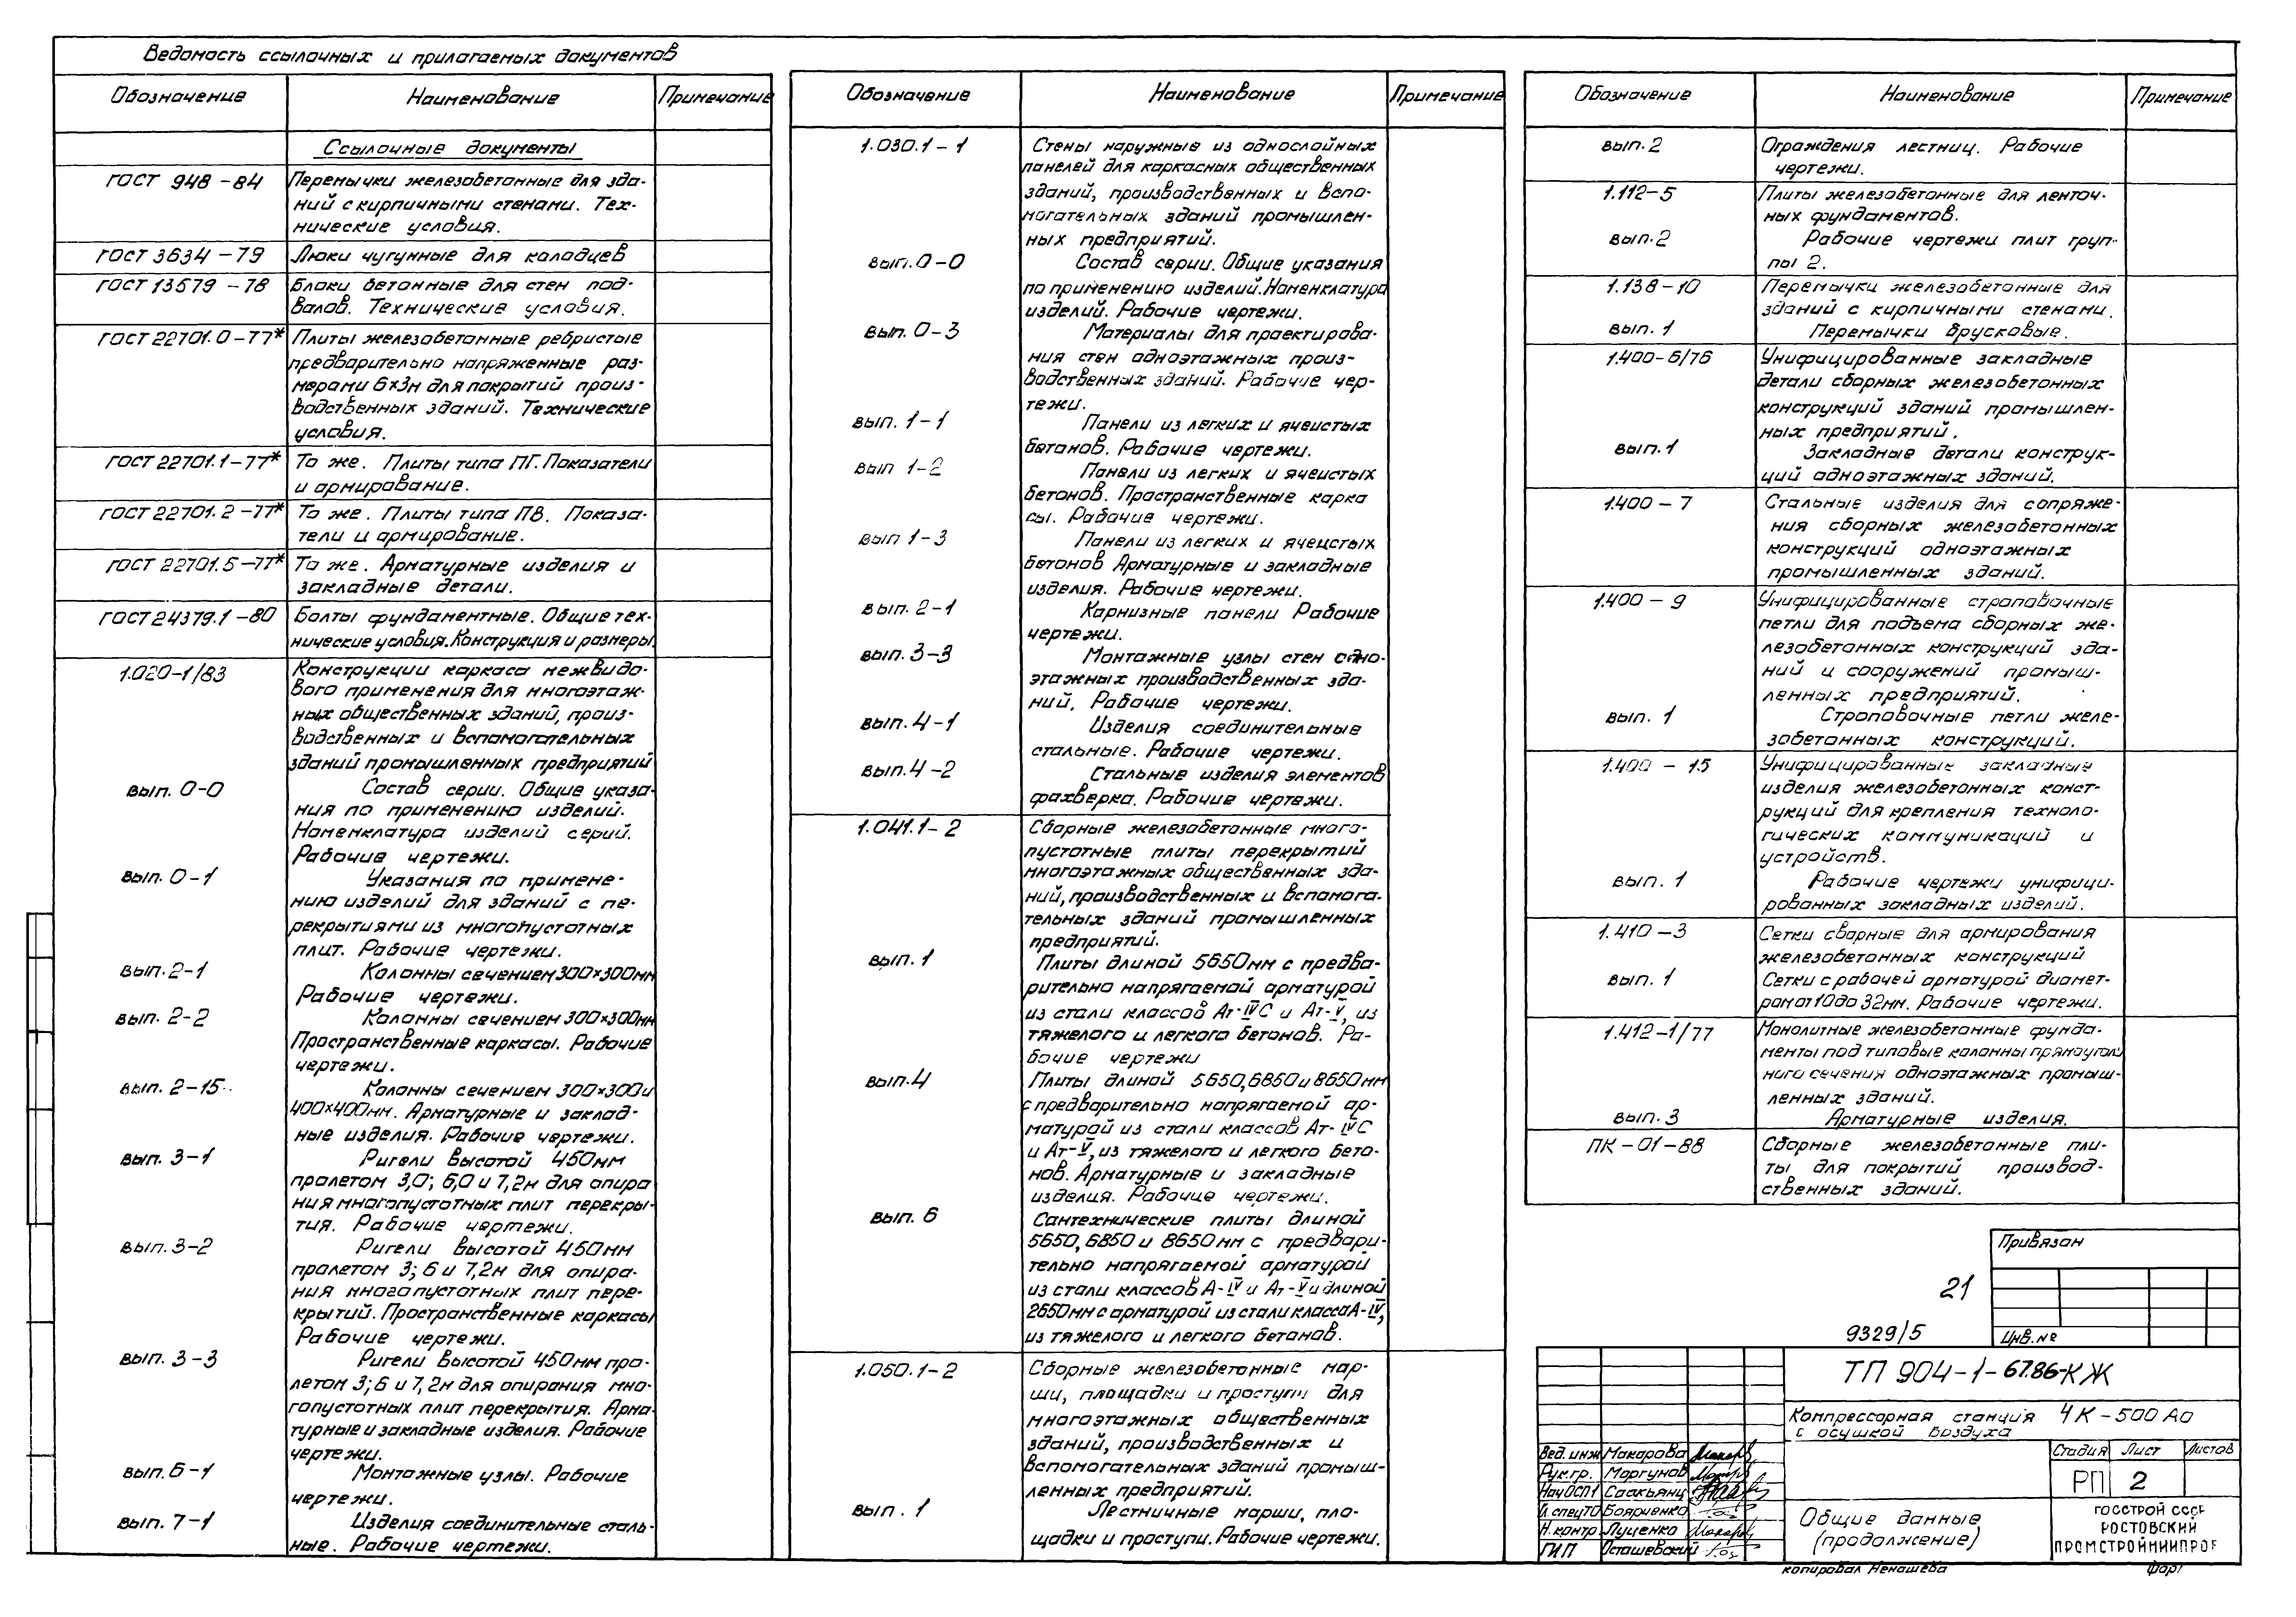 Ведомость ссылочных и прилагаемых документов
Обозначение Наименование Примечание
Ссылочные документы
ГОСТ 948-84 Перемычки железобетонные для зда-
ний с кирпичными стенами. Тех-
нические условия.
ГОСТ 3634-79 Люки чугунные для колодцев
ГОСТ 13579-78 Блоки бетонные для стен под-
валов. Технические условия.
ГОСТ 22701.0-77* Плиты железобетонные ребристые
предварительно напряженные раз-
мерами 6×3м для покрытий произ-
водственных зданий. Технические
условия.
ГОСТ 22701.1-77* То же. Плиты типа ПГ. Показатели
и армирование.
ГОСТ 22701.2-77* То же. Плиты типа ПВ. Показа-
тели и армирование.
ГОСТ 22701.5-77* То же. Арматурные изделия и
закладные детали.
ГОСТ 24379.1-80 Болты фундаментные. Общие тех-
нические условия. Конструкция и размеры.
1.020-1/83 Конструкции каркаса межвидо-
вого применения для многоэтаж-
ных общественных зданий, произ-
водственных и вспомогательных
зданий промышленных предприятий
вып. 0-0 Состав серии. Общие указа-
ния по применению изделий.
Номенклатура изделий серий.
Рабочие чертежи.
вып. 0-1 Указания по примене-
нию изделий для зданий с пе-
рекрытиями из многопустотных
плит. Рабочие чертежи.
вып. 2-1 Колонны сечением 300×300мм
Рабочие чертежи.
вып. 2-2 Колонны сечением 300×300мм
Пространственные каркасы. Рабочие
чертежи.
вып. 2-15 Колонны сечением 300×300 и
400×400мм. Арматурные и заклад-
ные изделия. Рабочие чертежи.
вып. 3-1 Ригели высотой 450мм
пролетом 3,0; 6,0 и 7,2м для опира
ния многопустотных плит перекры-
тия. Рабочие чертежи.
вып. 3-2 Ригели высотой 450мм
пролетом 3; 6 и 7,2м для опира-
ния многопустотных плит пере-
крытий. Пространственные каркасы
Рабочие чертежи.
вып. 3-3 Ригели высотой 450мм про-
летом 3; 6 и 7,2м для опирания мно-
гопустотных плит перекрытия. Арма-
турные и закладные изделия. Рабочие
чертежи.
вып. 6-1 Монтажные узлы. Рабочие
чертежи.
вып. 7-1 Изделия соединительные сталь-
ные. Рабочие чертежи.
Обозначение Наименование Примечание
1.030.1-1 Стены наружные из однослойных
панелей для каркасных общественных
зданий, производственных и вспо-
могательных зданий промышлен-
ных предприятий.
вып. 0-0 Состав серии. Общие указания
по применению изделий. Номенклатура
изделий. Рабочие чертежи.
вып. 0-3 Материалы для проектирова-
ния стен одноэтажных произ-
водственных зданий. Рабочие чер-
тежи.
вып. 1-1 Панели из легких и ячеистых
бетонов. Рабочие чертежи.
вып 1-2 Панели из легких и ячеистых
бетонов. Пространственные карка
сы. Рабочие чертежи.
вып 1-3 Панели из легких и ячеистых
бетонов Арматурные и закладные
изделия. Рабочие чертежи.
вып. 2-1 Карнизные панели Рабочие
чертежи.
вып. 3-3 Монтажные узлы стен одно-
этажных производственных зда-
ний, Рабочие чертежи.
вып. 4-1 Изделия соединительные
стальные. Рабочие чертежи.
вып. 4-2 Стальные изделия элементов
фахверка. Рабочие чертежи.
1.041.1-2 Сборные железобетонные много-
пустотные плиты перекрытий
многоэтажных общественных зда-
ний, производственных и вспомога-
тельных зданий промышленных
предприятий.
вып. 1 Плиты длиной 5650мм с предва-
рительно напрягаемой арматурой
из стали классов Ат-IVС и Ат-V, из
тяжелого и легкого бетонов. Ра-
бочие чертежи
вып. 4 Плиты длиной 5650, 6850 и 8650мм
с предварительно напрягаемой ар-
матурой из стали классов Ат-IVС
и Ат-V, из тяжелого и легкого бето-
нов. Арматурные и закладные
изделия. Рабочие чертежи.
вып. 6 Сантехнические плиты длиной
5650, 6850 и 8650мм с предвари-
тельно напрягаемой арматурой
из стали классов А-IV и Ат-V и длиной
2650мм с арматурой из стали класса А-IV,
из тяжелого и легкого бетонов.
1.050.1-2 Сборные железобетонные мар-
ши, площадки и проступи для
многоэтажных общественных
зданий, производственных и
вспомогательных зданий промыш-
ленных предприятий.
вып. 1 Лестничные марши, пло-
щадки и проступи. Рабочие чертежи.
Обозначение Наименование Примечание
вып. 2 Ограждения лестниц. Рабочие
чертежи.
1.112-5 Плиты железобетонные для ленточ-
ных фундаментов.
вып. 2 Рабочие чертежи плит груп-
пы 2.
1.138-10 Перемычки железобетонные для
зданий с кирпичными стенами.
вып. 1 Перемычки брусковые.
1.400-6/76 Унифицированные закладные
детали сборных железобетонных
конструкций зданий промышлен-
ных предприятий.
вып. 1 Закладные детали конструк-
ций одноэтажных зданий.
1.400-7 Стальные изделия для сопряже-
ния сборных железобетонных
конструкций одноэтажных
промышленных зданий.
1.400-9 Унифицированные строповочные
петли для подъема сборных же-
лезобетонных конструкций зда-
ний и сооружений промыш-
ленных предприятий.
вып. 1 Строповочные петли желе-
зобетонных конструкций.
1.400-15 Унифицированные закладные
изделия железобетонных конст-
рукций для крепления техноло-
гических коммуникаций и
устройств.
вып. 1 Рабочие чертежи унифици-
рованных закладных изделий.
1.410-3 Сетки сварные для армирования
железобетонных конструкций
вып. 1 Сетки с рабочей арматурой диамет-
ром от 10 до 32мм. Рабочие чертежи.
1.412-1/77 Монолитные железобетонные фунда-
менты под типовые колонны прямоуголь
ного сечения одноэтажных промыш-
ленных зданий.
вып. 3 Арматурные изделия.
ПК-01-88 Сборные железобетонные пли-
ты для покрытий производ-
ственных зданий.
Привязан
21
9329/5
Инв. №
ТП 904-1-67.86-КЖ
Компрессорная станция 4К-500Ао
с осушкой воздуха
Стадия Лист Листов
РП 2
Вед.инж Макарова
Рук.гр. Моргунов
Нач ОСП1 Саакьянц
Гл.спец ТО Боярченко
Н.контр. Луценко
ГИП Осташевский
Общие данные
(продолжение)
ГОССТРОЙ СССР
РОСТОВСКИЙ
ПРОМСТРОЙНИИПРОЕ
копировал Ненашева
Форм